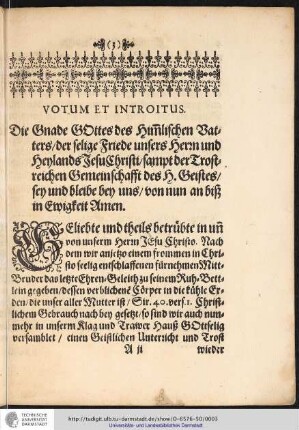 (3)
VOTUM ET INTROITUS.
Die Gnade GOttes des Him̃lischen Vat-
ters/ der selige Friede unsers Herrn und
Heylands Jesu Christi/ sampt der Trost-
reichen Gemeinschafft des H. Geistes/
sey und bleibe bey uns/ von nun an biß
in Ewigkeit Amen.
GEliebte und theils betrübte in uñ
von unserm Herrn JEsu Christo. Nach
dem wir anjetzo einem frommen in Chri-
sto seelig entschlaffenen fürnehmen Mitt-
Bruder das letzte Ehren-Geleith zu seinem Ruh-Bett-
lein gegeben/ dessen verblichenẽ Cörper in die kühle Er-
den/ die unser aller Mutter ist/ Sir. 40. vers. 1. Christ-
lichem Gebrauch nach bey gesetzt/ so sind wir auch nun-
mehr in unserm Klag und Trawer Hauß GOttselig
versamblet/ einen Geistlichen Unterricht und Trost
A ij wieder
TECHNISCHE
UNIVERSITÄT
DARMSTADT
http://tudigit.ulb.tu-darmstadt.de/show/D-0576-50/0003
Universitäts- und Landesbibliothek Darmstadt